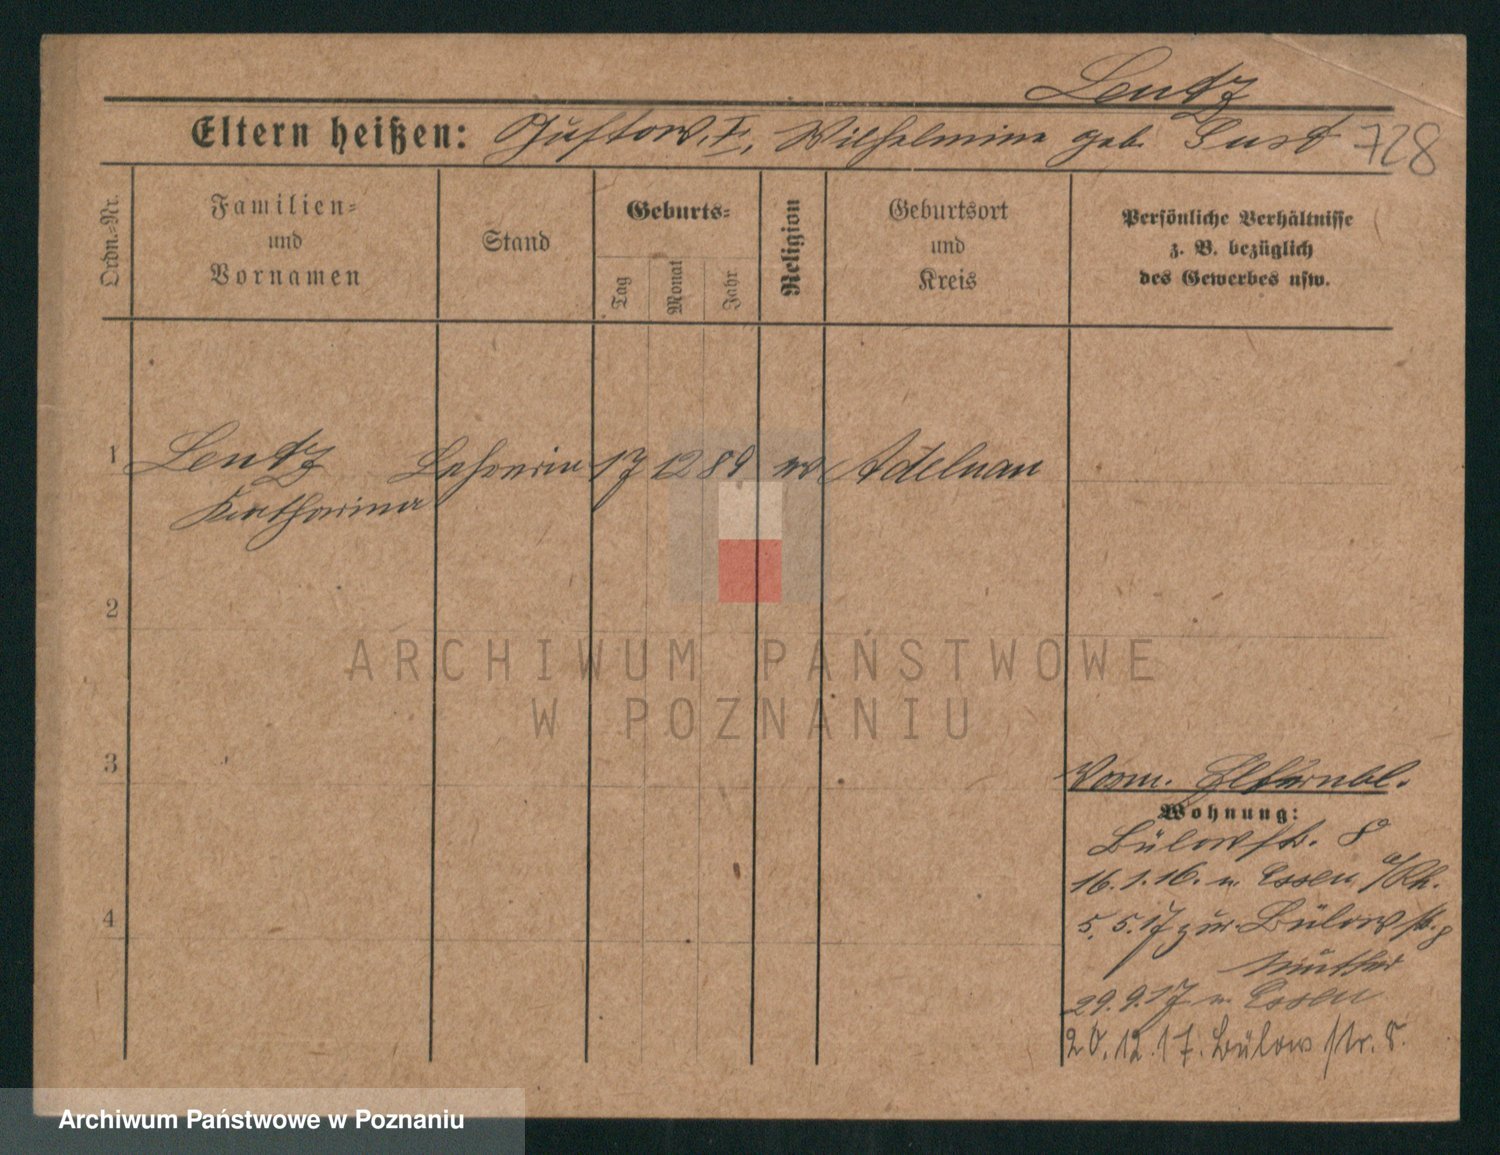 Lentz
Eltern heißen: Gustav, Wilhelmine geb. Gust 728
Ordn.-Nr.
Familien-
und
Vornamen
Stand
Geburts-
Tag
Monat
Jahr
Religion
Geburtsort
und
Kreis
Persönliche Verhältnisse
z. B. bezüglich
des Gewerbes usw.
1 Lentz Lehrerin 17 12 89 ev Adelnau
Katharina
2
ARCHIWUM PAŃSTWOWE
W POZNANIU
3
Vorm. Elternbl.
Wohnung:
Bülowstr. 8
16.1.16. n. Essen a/Rh.
4
5.5.17 zur. Bülowstr. 8
Mutter
29.9.17 n. Essen
20.12.17. Bülowstr. 8.
Archiwum Państwowe w Poznaniu